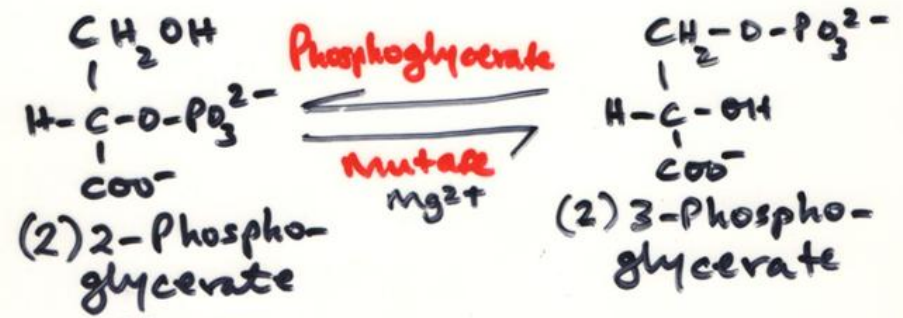 CH2OH
H-C-O-PO3 2-
COO-
(2) 2-Phospho-
glycerate
Phosphoglycerate
Mutase
Mg2+
CH2-O-PO3 2-
H-C-OH
COO-
(2) 3-Phospho-
glycerate